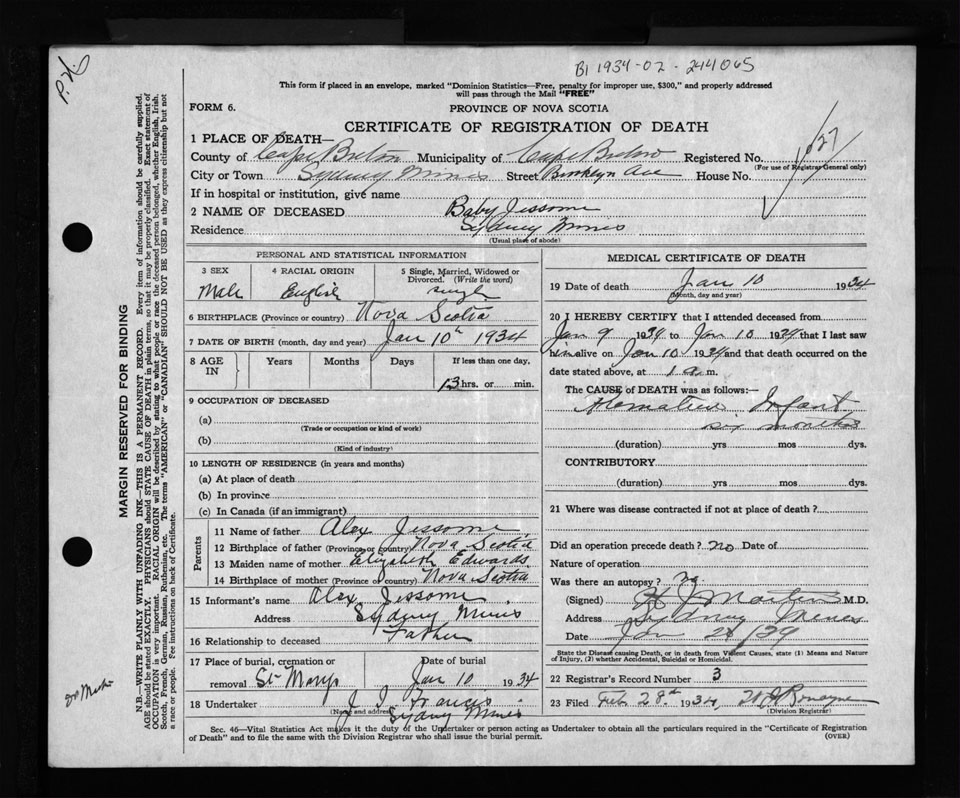 B1 1934-02-244065
P.H.
This form if placed in an envelope, marked "Dominion Statistics—Free, penalty for improper use, $300," and properly addressed
will pass through the Mail "FREE"
FORM 6.
PROVINCE OF NOVA SCOTIA
CERTIFICATE OF REGISTRATION OF DEATH
1 PLACE OF DEATH—
County of Cape Breton Municipality of Cape Breton Registered No. 127
(For use of Registrar General only)
City or Town Sydney Mines Street Brooklyn Ave House No.
If in hospital or institution, give name
2 NAME OF DECEASED Baby Jessome
Residence Sydney Mines
(Usual place of abode)
PERSONAL AND STATISTICAL INFORMATION
3 SEX
Male
4 RACIAL ORIGIN
English
5 Single, Married, Widowed or Divorced. (Write the word)
single
6 BIRTHPLACE (Province or country) Nova Scotia
7 DATE OF BIRTH (month, day and year) Jan 10th 1934
8 AGE IN
Years Months Days If less than one day,
13 hrs. or min.
9 OCCUPATION OF DECEASED
(a)
(Trade or occupation or kind of work)
(b)
(Kind of industry)
10 LENGTH OF RESIDENCE (in years and months)
(a) At place of death
(b) In province
(c) In Canada (if an immigrant)
Parents
11 Name of father Alex Jessome
12 Birthplace of father (Province or country) Nova Scotia
13 Maiden name of mother Elizabeth Edwards
14 Birthplace of mother (Province or country) Nova Scotia
15 Informant's name Alex Jessome
Address Sydney Mines
16 Relationship to deceased Father
17 Place of burial, cremation or removal St Marys
Date of burial
Jan 10 1934
18 Undertaker J J Francis
(Name and address) Sydney Mines
MEDICAL CERTIFICATE OF DEATH
19 Date of death Jan 10 1934
(Month, day and year)
20 I HEREBY CERTIFY that I attended deceased from
Jan 9 1934 to Jan 10 1934 that I last saw
him alive on Jan 10 1934 and that death occurred on the
date stated above, at 1 a m.
The CAUSE of DEATH was as follows:-
Infant
six months
(duration) yrs mos dys.
CONTRIBUTORY
(duration) yrs mos dys.
21 Where was disease contracted if not at place of death?
Did an operation precede death? no Date of
Nature of operation
Was there an autopsy? no
(Signed) M.D.
Address Sydney Mines
Date Jan 28/34
State the Disease causing Death, or in death from Violent Causes, state (1) Means and Nature
of Injury, (2) whether Accidental, Suicidal or Homicidal.
22 Registrar's Record Number 3
23 Filed Feb. 28th 1934,
(Division Registrar)
Sec. 46—Vital Statistics Act makes it the duty of the Undertaker or person acting as Undertaker to obtain all the particulars required in the "Certificate of Registration
of Death" and to file the same with the Division Registrar who shall issue the burial permit.
(OVER)
MARGIN RESERVED FOR BINDING
N.B.—WRITE PLAINLY WITH UNFADING INK—THIS IS A PERMANENT RECORD. Every item of information should be carefully supplied.
AGE should be stated EXACTLY. PHYSICIANS should STATE CAUSE OF DEATH in plain terms, so that it may be properly classified. Exact statement of
OCCUPATION is very important. RACIAL ORIGIN will be described by stating to what people or race the deceased person belonged, whether English, Irish,
Scotch, French, German, Russian, Ruthenian, etc. The terms "AMERICAN" or "CANADIAN" SHOULD NOT BE USED as they express citizenship but not
a race or people. Fee instructions on back of Certificate.